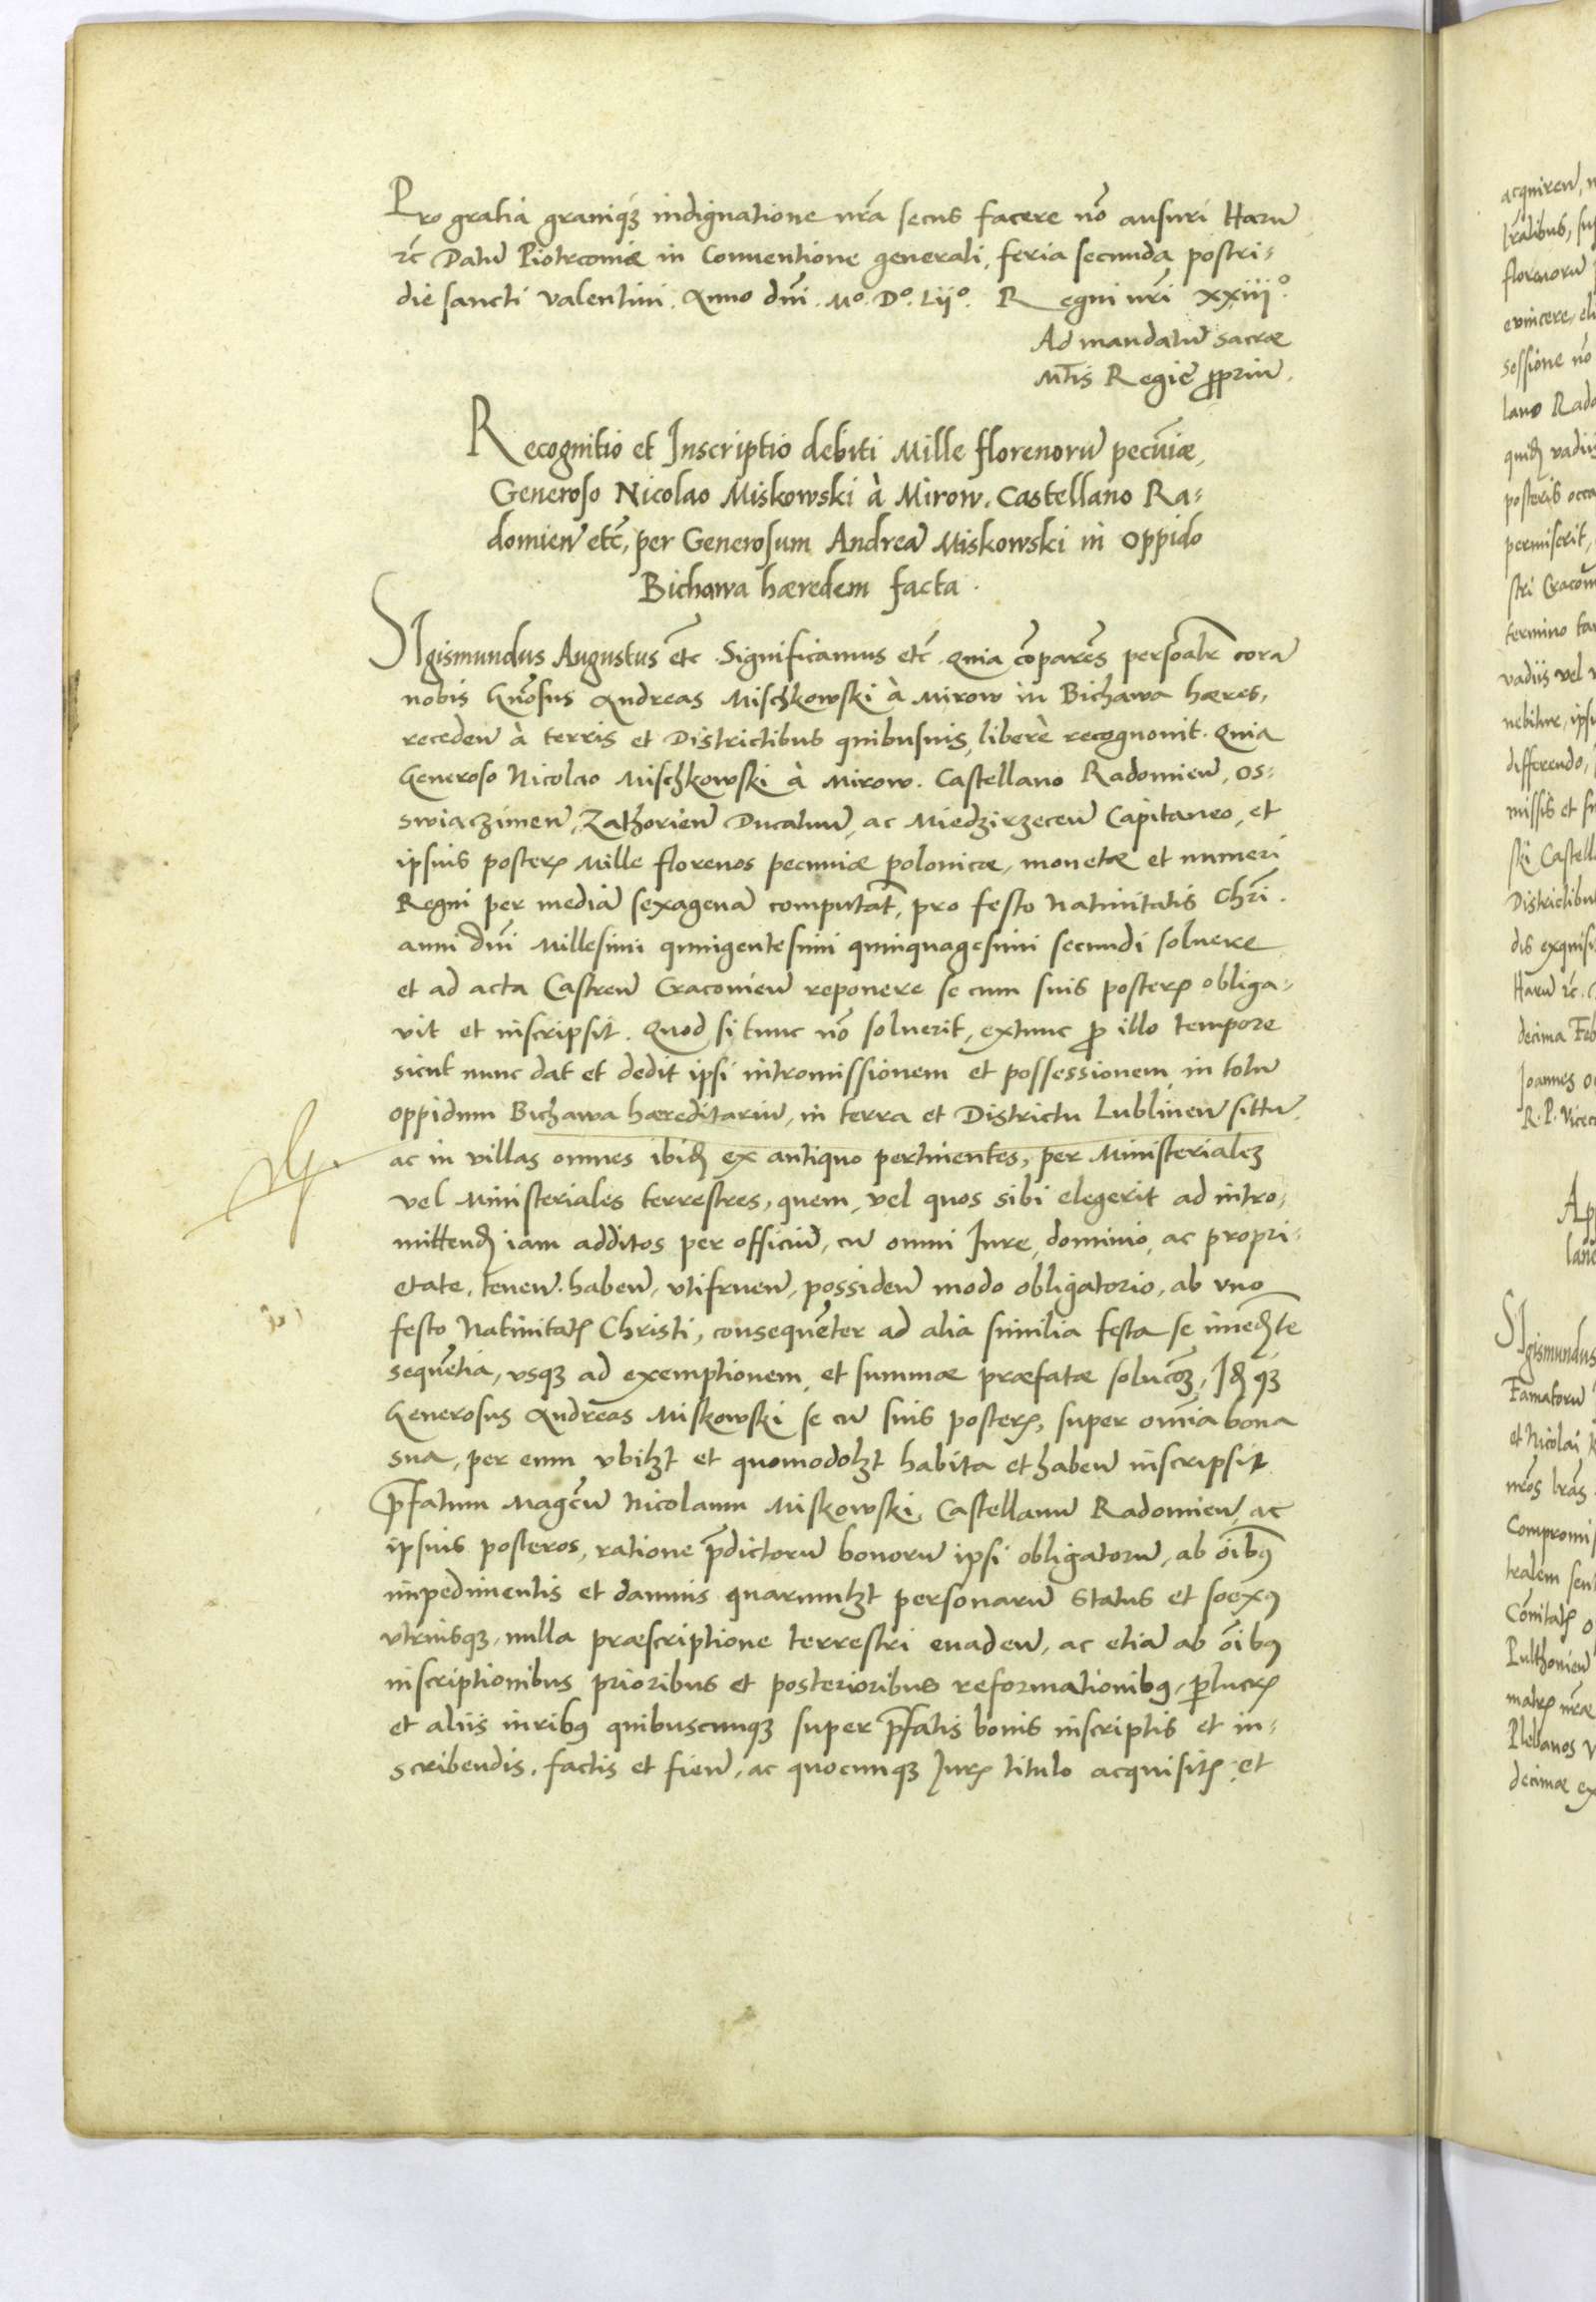 Pro gratia grauiq́ꝫ indignatione nr̃a secus facere nõ ausuri Harũ
ꝛc̃ Datũ Piotrcouiæ in Conuentione generali, feria secunda postri-
die sancti Valentini. Anno dñi. Mº. Dº. Lijº. Regni nr̃i xxiijº.
Ad mandatũ sacræ
M̃tis Regiæ ꝓpriũ.
Recognitio et Inscriptio debiti Mille florenorũ pecũiæ,
Generoso Nicolao Miskowski à Mirow. Castellano Ra-
domieñ etc̃, per Generosum Andreã Miskowski in Oppido
Bichawa hæredem facta.
SIgismundus Augustus etc̃. Significamus etc̃. Quia cõparẽs persoãlr̃ corã
nobis Gñosus Andreas Mischkowski à Mirow in Bichawa hæres,
recedeñ à terris et Districtibus quibusuis, liberè recognouit. Quia
Generoso Nicolao Mischkowski à Mirow. Castellano Radomieñ, Os-
swiaczimeñ, Zathorieñ Ducatuũ, ac Miedzirzeceñ Capitaneo, et
ipsius posterꝭ Mille florenos pecuniæ polonicæ, monetæ et numeri
Regni per mediã sexagenã computat̃, pro festo Natiuitatis Chr̃i.
anni dñi Millesimi quingentesimi quinquagesimi secundi soluere
et ad acta Castreñ Cracouieñ reponere se cum suis posterꝭ obliga-
vit et inscripsit. Quod si tunc nõ soluerit, extunc ꝓ illo tempore
sicut nunc dat et dedit ipsi intromissionem et possessionem in totũ
oppidum Bichawa hæreditariũ, in terra et Districtu Lublineñ sittũ.
ac in villas omnes ibiđ ex antiquo pertinentes, per Ministerialeꝫ
vel Ministeriales terrestres, quem, vel quos sibi elegerit ad intro-
mittenđ iam additos per officiũ, cũ omni Iure, dominio, ac propri-
etate, teneñ. habeñ, vtifrueñ, possideñ modo obligatorio, ab vno
festo Natiuitatꝭ Christi, consequẽter ad alia similia festa se im̃eđte
sequẽtia, vsqꝫ ad exemptionem, et summæ præfatæ solucõꝫ, Iđqꝫ
Generosus Andreas Miskowski se cũ suis posterꝭ, super om̃ia bona
sua, per eum vbilꝫt et quomodolꝫt habita et habeñ inscripsit
p̃fatum Magcũ Nicolaum Miskowski, Castellanũ Radomieñ, ac
ipsius posteros, ratione p̃dictorũ bonorũ ipsi obligatorũ, ab õibꝰ
impedimentis et damnis quarumlꝫt personarũ status et soexꝰ
vtriusqꝫ, nulla præscriptione terrestri euadeñ, ac etiã ab õibꝰ
inscriptionibus prioribus et posterioribus reformationibꝰ, ꝑlucrꝭ
et aliis iuribꝰ quibuscunqꝫ super p̃fatis bonis inscriptis et in-
scribendis. factis et fieñ, ac quocunqꝫ Iurꝭ titulo acquisitꝭ et